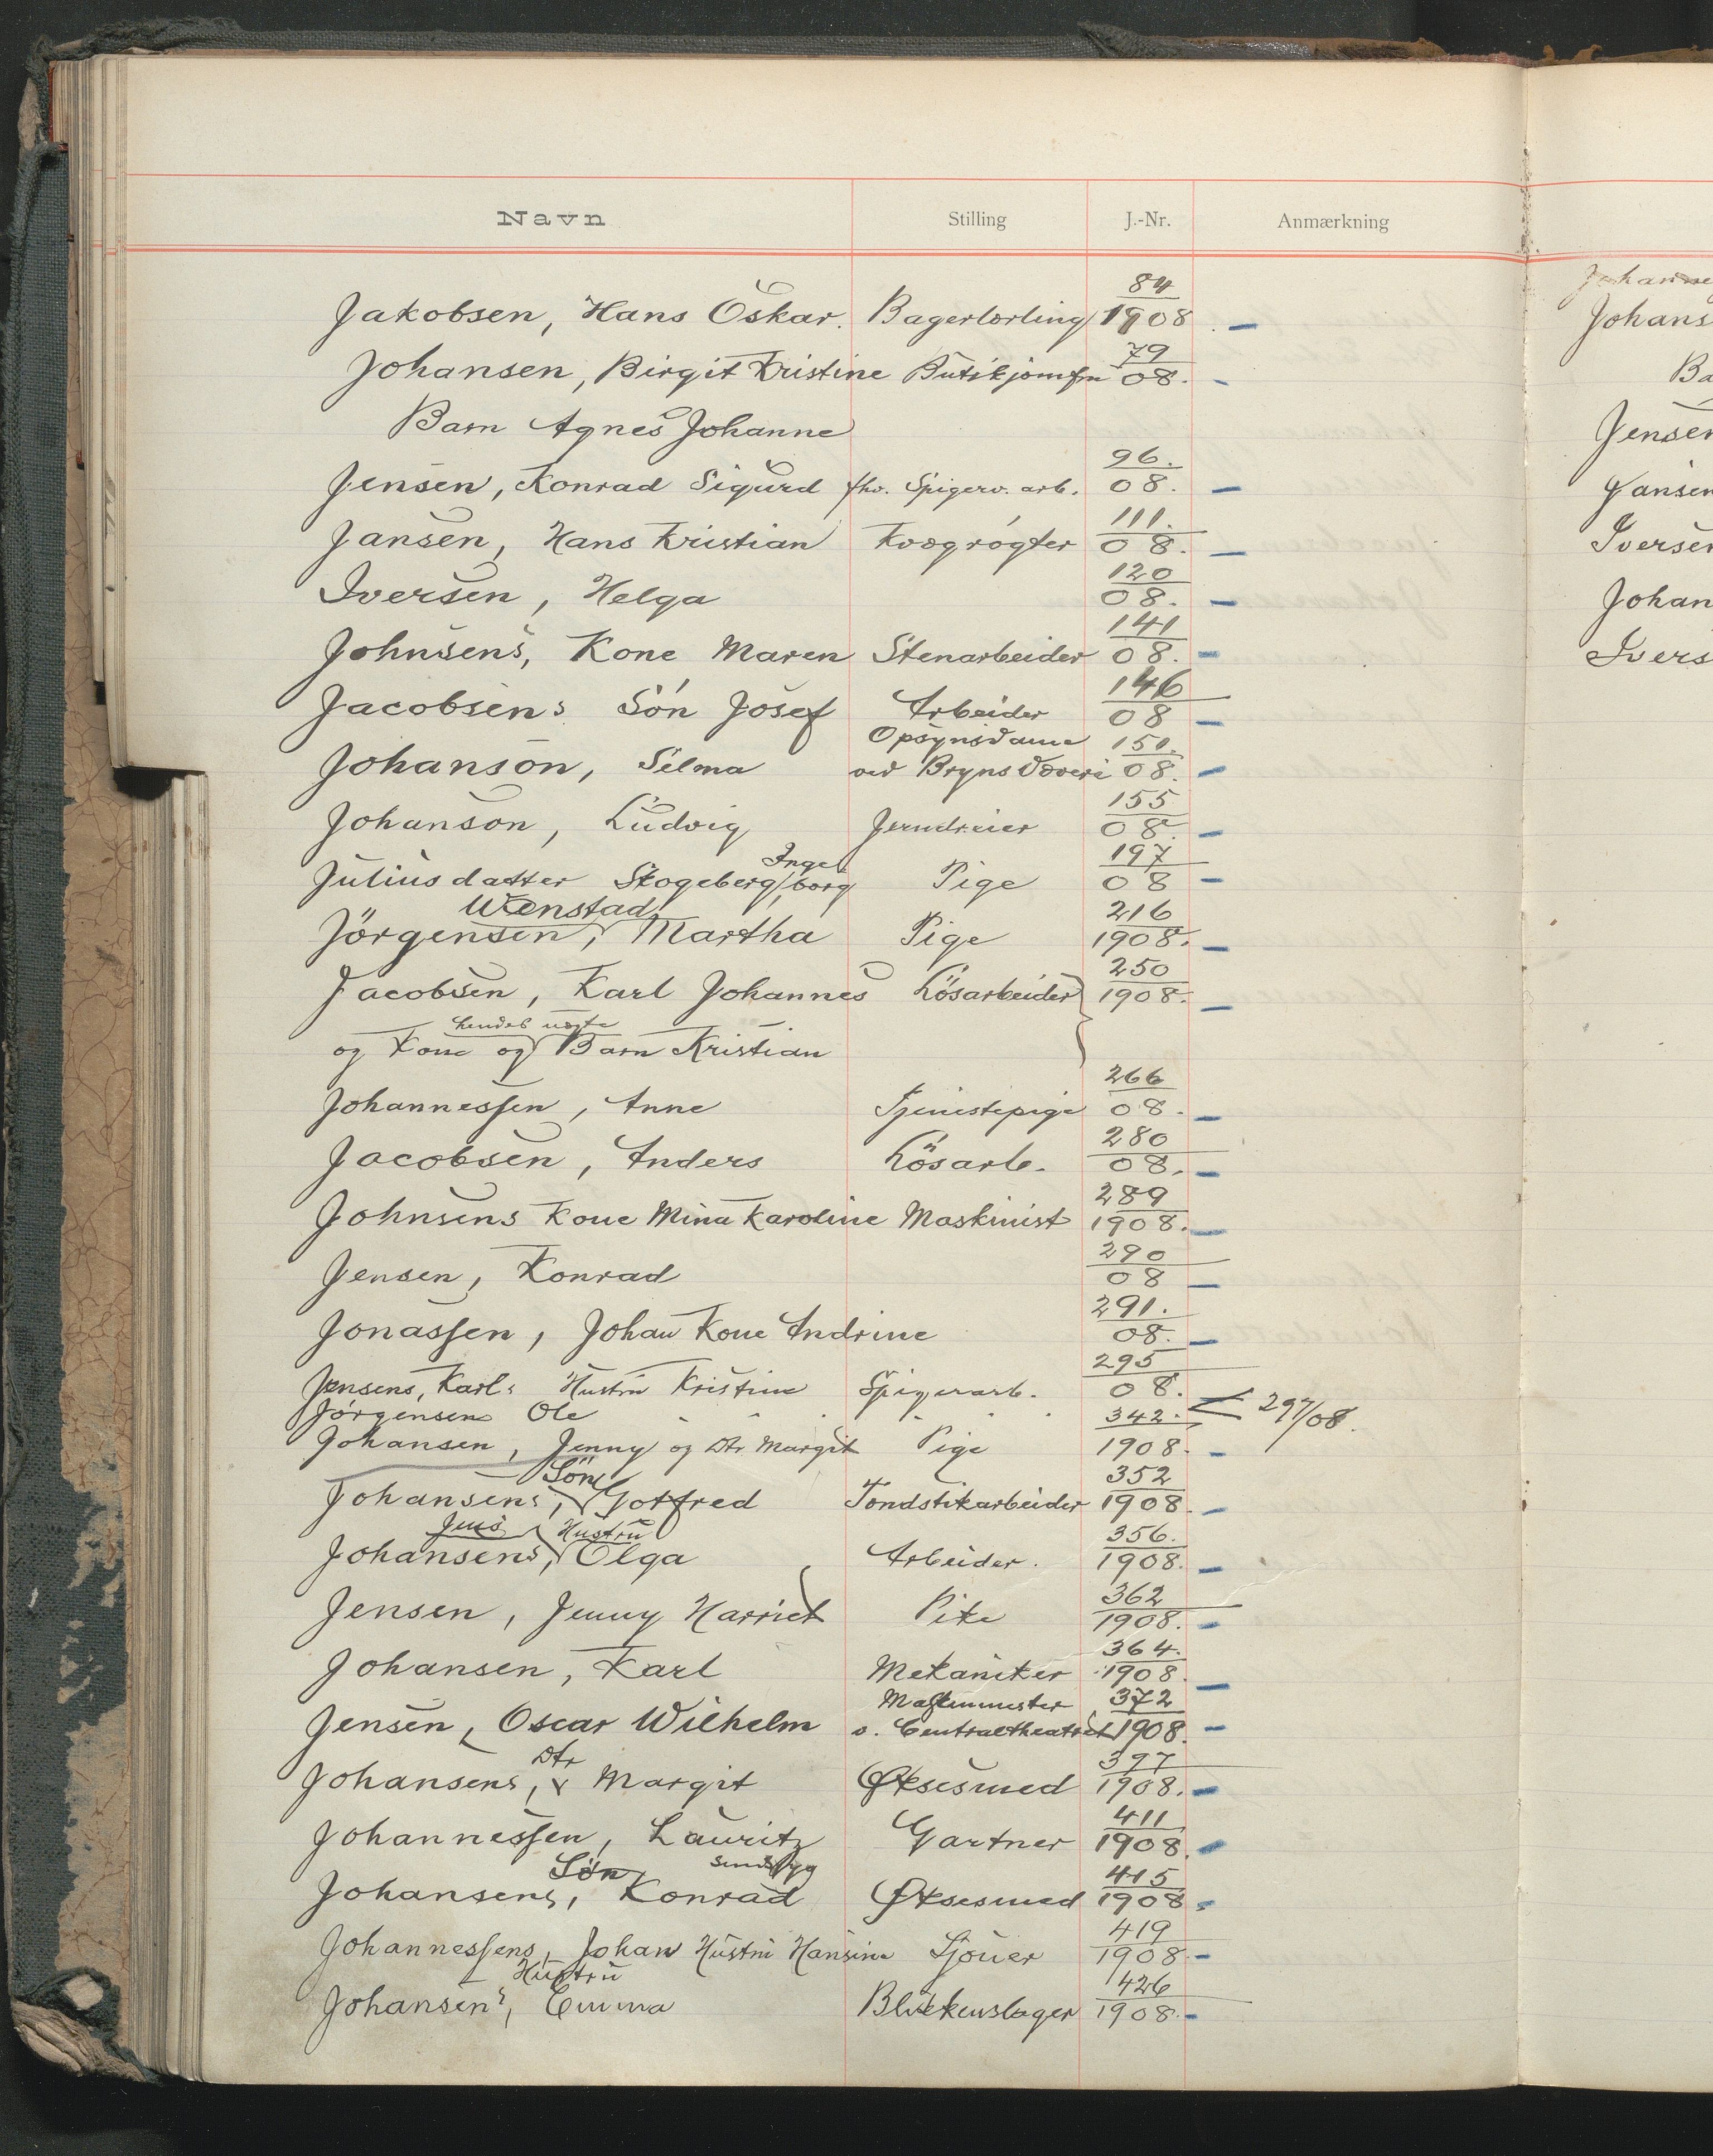 Navn Stilling J.-Nr. Anmærkning
Jakobsen, Hans Oskar. Bagerlærling 84/1908
Johansen, Birgit Kristine Butikjomfru 79/08.
Barn Agnes Johanne
Jensen, Konrad Sigurd fhv. Spigerv. arb. 96./08.
Jansen, Hans Kristian Kvægrøgter 111./08.
Iversen, Helga 120/08.
Johnsens, Kone Maren Stenarbeider 141/08.
Jacobsens Sön Josef Arbeider 146/08
Opsynsdame
Johanson, Selma ved Bryns Væveri 151./08.
Johanson, Ludvig Jerndreier 155/08.
Juliusdatter Skogeberg, Ingeborg Pige 197/08
Wenstad
Jörgensen, Martha Pige 216/1908.
Jacobsen, Karl Johannes Lösarbeider 250/1908.
hendes uægte
og Kone og Barn Kristian
Johannessen, Anne Tjenestepige 266/08.
Jacobsen, Anders Lösarb. 280/08.
Johnsens Kone Mina Karoline Maskinist 289/1908.
Jensen, Konrad 290/08
Jonassen, Johan Kone Andrine 291./08.
Jensens, Karls Hustru Kristine Spigerarb. 295/08.
Jörgensen Ole " " " " 297/08.
Johansen, Jenny og Dtr Margit Pige 342./1908.
Sön
Johansens, Gotfred Tondstikarbeider 352/1908.
Jens Hustru
Johansens, Olga Arbeider. 356./1908.
Jensen, Jenny Harriet Pike 362/1908.
Johansen, Karl Mekaniker 364./1908.
Maskinmester
Jensen, Oscar Wilhelm v. Centraltheatret 372/1908.
Dtr
Johansens, Margit Øksesmed 397/1908.
Johannessen, Lauritz Gartner 411/1908.
Sön sindssyg
Johansens, Konrad Øksesmed 415/1908
Johannessens, Johan Hustru Hansine Sjouer 419/1908
Hustru
Johansens, Emma Blikkenslager 426/1908.
Johans
Ba
Jensen
Jansen
Iversen
Johan
Ivers